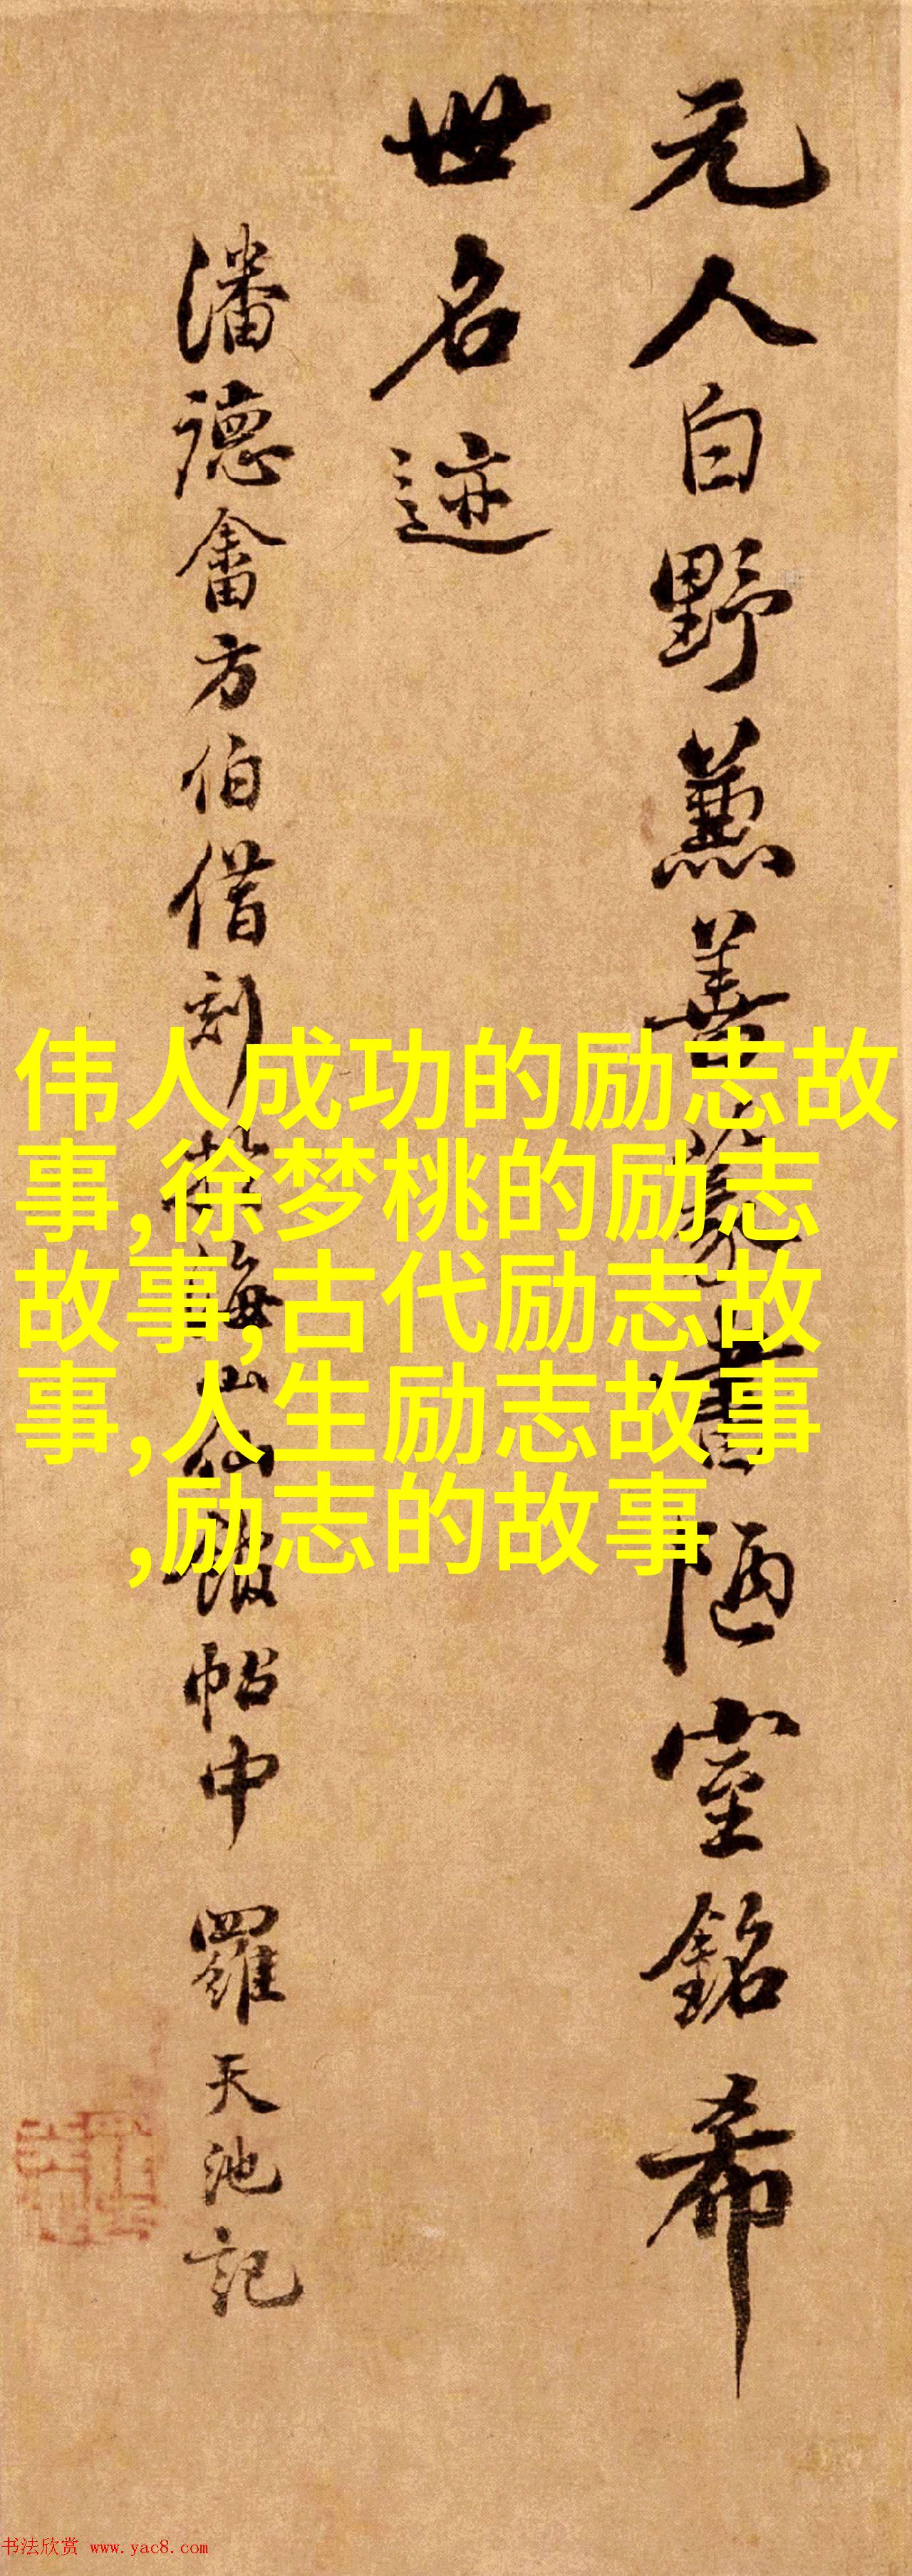 元人白野藁善篆書陋室銘希
世名迹
潘德畬方伯借刻於海山仙館帖中 羅天池記
伟人成功的励志故
事,徐梦桃的励志
故事,古代励志故
事,人生励志故事
,励志的故事
书法欣赏 www.yac8.com